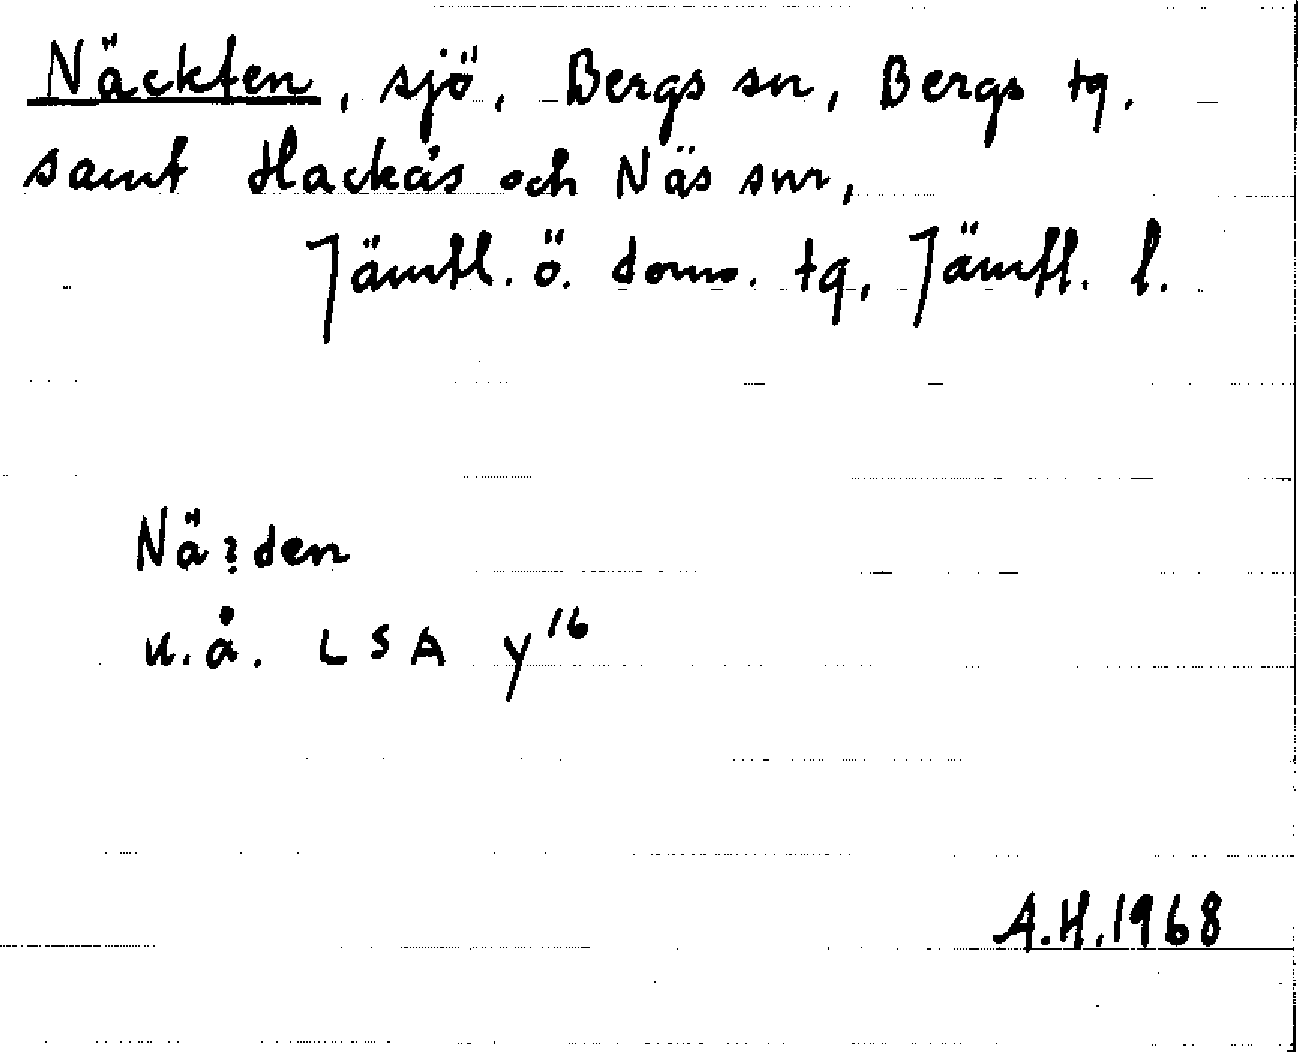 Näckten, sjö, Bergs sn, Bergs tg.
samt Hackås och Näs snr,
Jämtl. ö. doms. tg, Jämtl. l.
Nä?den
u.å. LSA y16
A.H. 1968